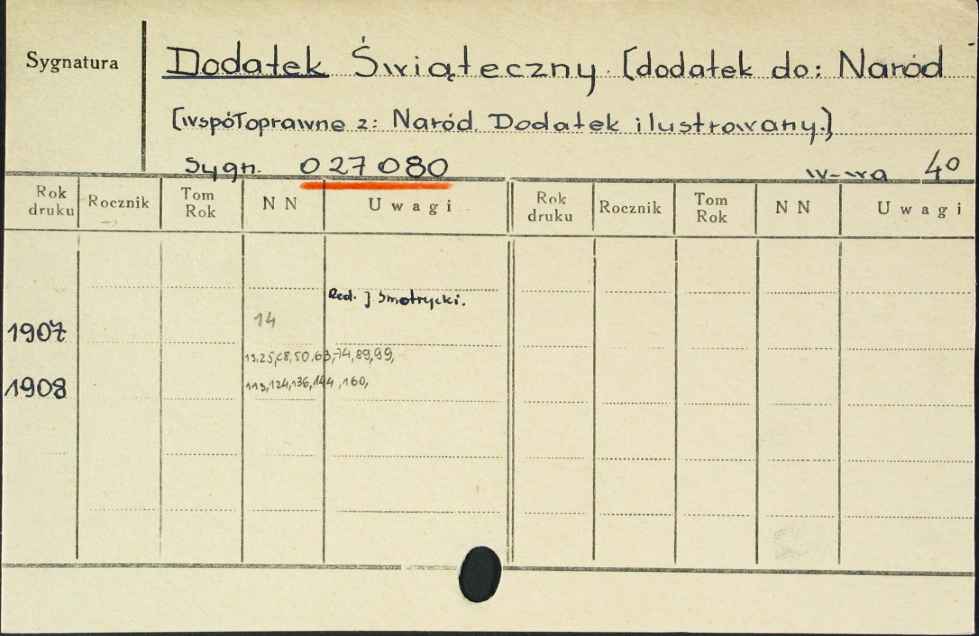 Sygnatura
Dodatek Świąteczny. [dodatek do: Naród
[współoprawne z: Naród. Dodatek ilustrowany.]
Sygn. 027080 W-wa 4º
Rok druku Rocznik Tom Rok NN Uwagi Rok druku Rocznik Tom Rok NN Uwagi
Red. J Smotrycki.
1907 14
13,25,38,50,63,74,89,99,
1908 113,124,136,144,160,